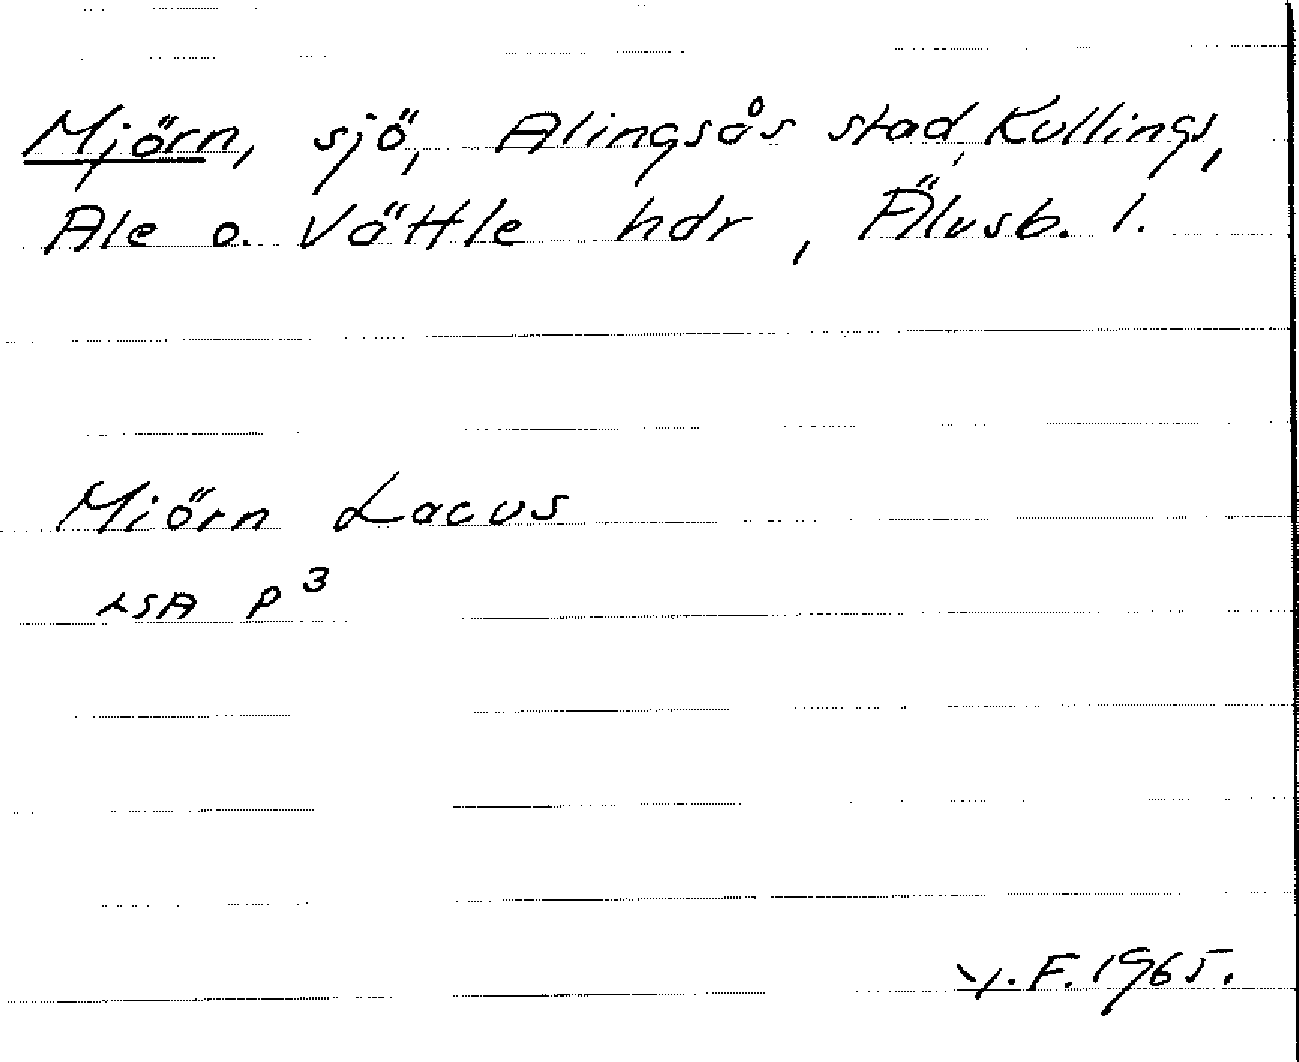 Mjörn, sjö, Alingsås stad, Kullings,
Ale o. Vättle hdr, Älvsb. l.
Miörn Lacus
LSA P³
Y.F. 1965.